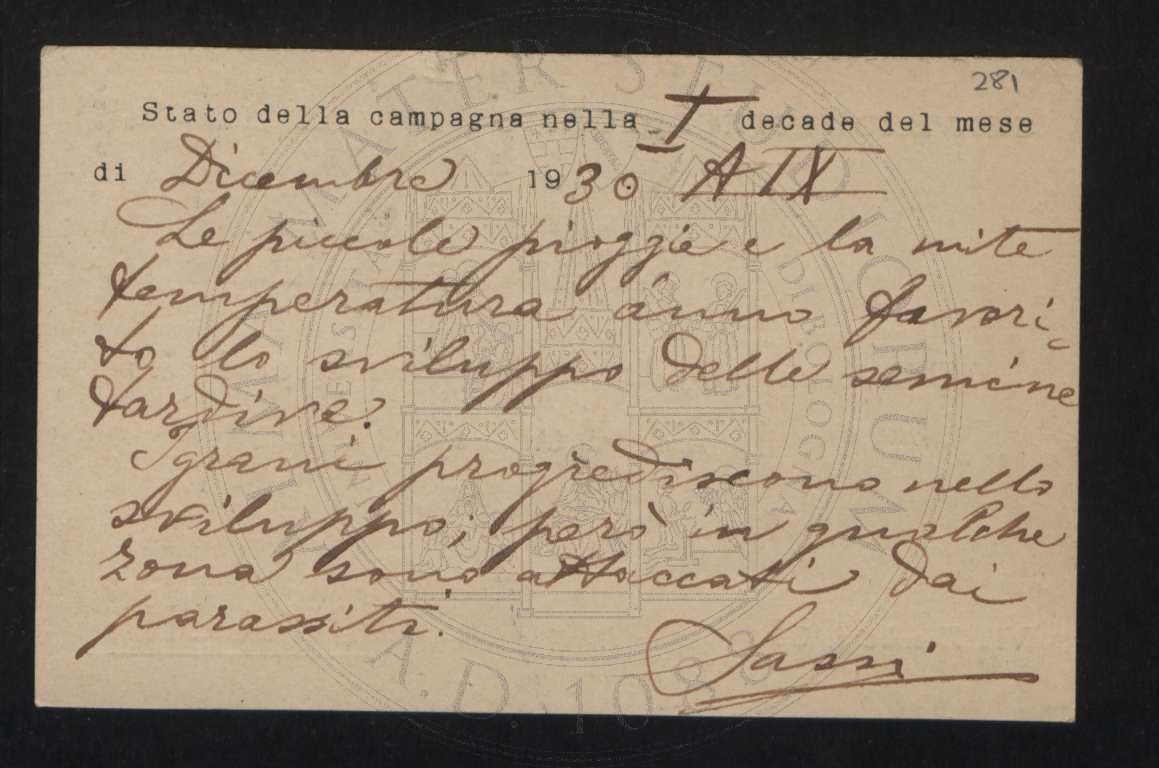 281
Stato della campagna nella I decade del mese
di Dicembre 1930 A IX
Le piccole pioggie e la mite
temperatura ànno favori-
to lo sviluppo delle semine
tardive.
I grani progrediscono nello
sviluppo; però in qualche
zona sono attaccati dai
parassiti.
Sassi
ALMA MATER STUDIORUM
A.D. 1088